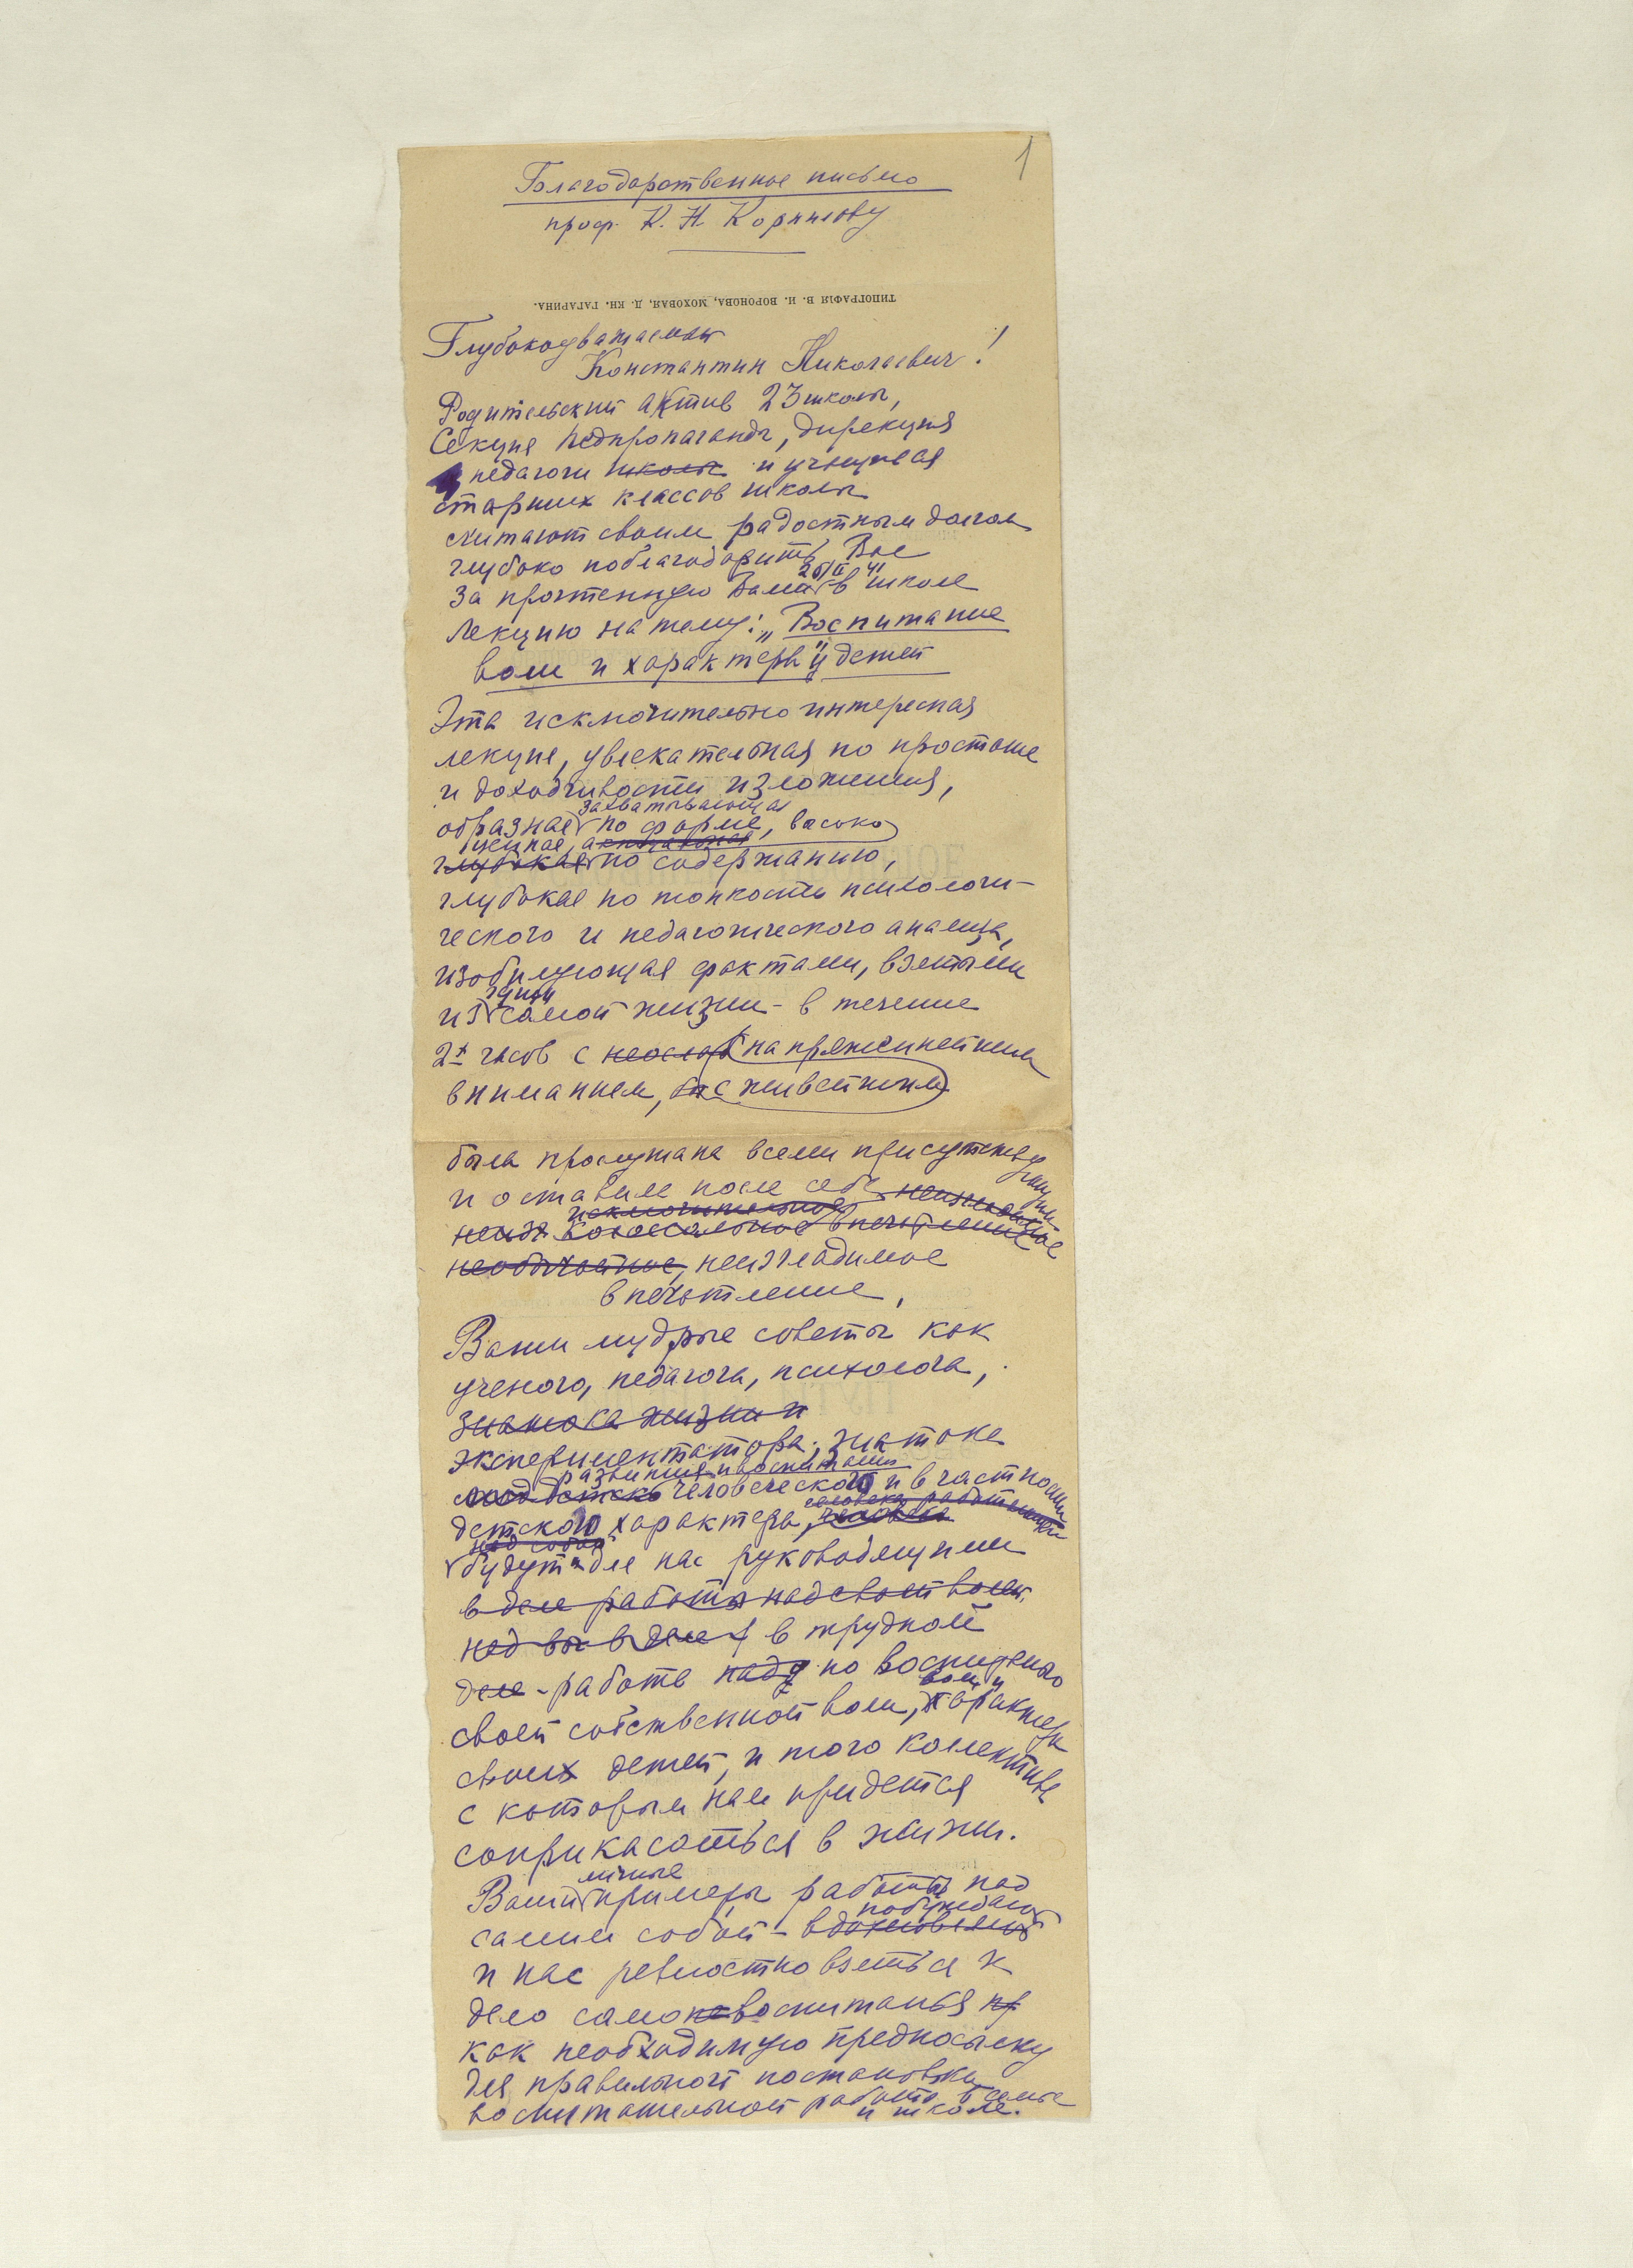 1
Благодарственное письмо
проф. К. Н. Корнилову
ТИПОГРАФІЯ В. И. ВОРОНОВА, МОХОВАЯ, Д. КН. ГАГАРИНА.
Глубокоуважаемый
Константин Николаевич!
Родительский актив 23 школы,
Секция педпропаганды, дирекция
педагоги школы и учащиеся
старших классов школы
считают своим радостным долгом
глубоко поблагодарить Вас
за прочтенную Вами 26/II 41 в школе
лекцию на тему: „Воспитание
воли и характера" у детей
Эта исключительно интересная
лекция, увлекательная по простоте
и доходчивости изложения,
захватывающая
образная по форме, высоко
ценная,
глубокая по содержанию,
глубокая по тонкости психологи-
ческого и педагогического анализа,
изобилующая фактами, взятыми
из гущи самой жизни - в течение
2х часов с неослаб напряженнейшим
вниманием, с живейшим
была прослушана всеми присутствующими
и оставила после себя неизгладимое
исключительное
колоссальное впечатление
необычайное, неизгладимое
впечатление,
Ваши мудрые советы как
ученого, педагога, психолога,
знатока жизни и
экспериментатора, знатока
развития и воспитания
человеческого и в частности
человека работающей
детского характера, человека
над собой
будут для нас руководящими
в деле работы над своей волей,
над в деле в трудной
деле - работе над по воспитанию
воли и
своей собственной воли, характера
своих детей, и того коллектива
с которым нам придется
соприкасаться в жизни.
личные
Ваши примеры работы над
побуждают
самим собой - вдохновляют
и нас ревностно взяться за
дело само воспитанья
как необходимую предпосылку
для правильной постановки
воспитательной работы в семье
и школе.